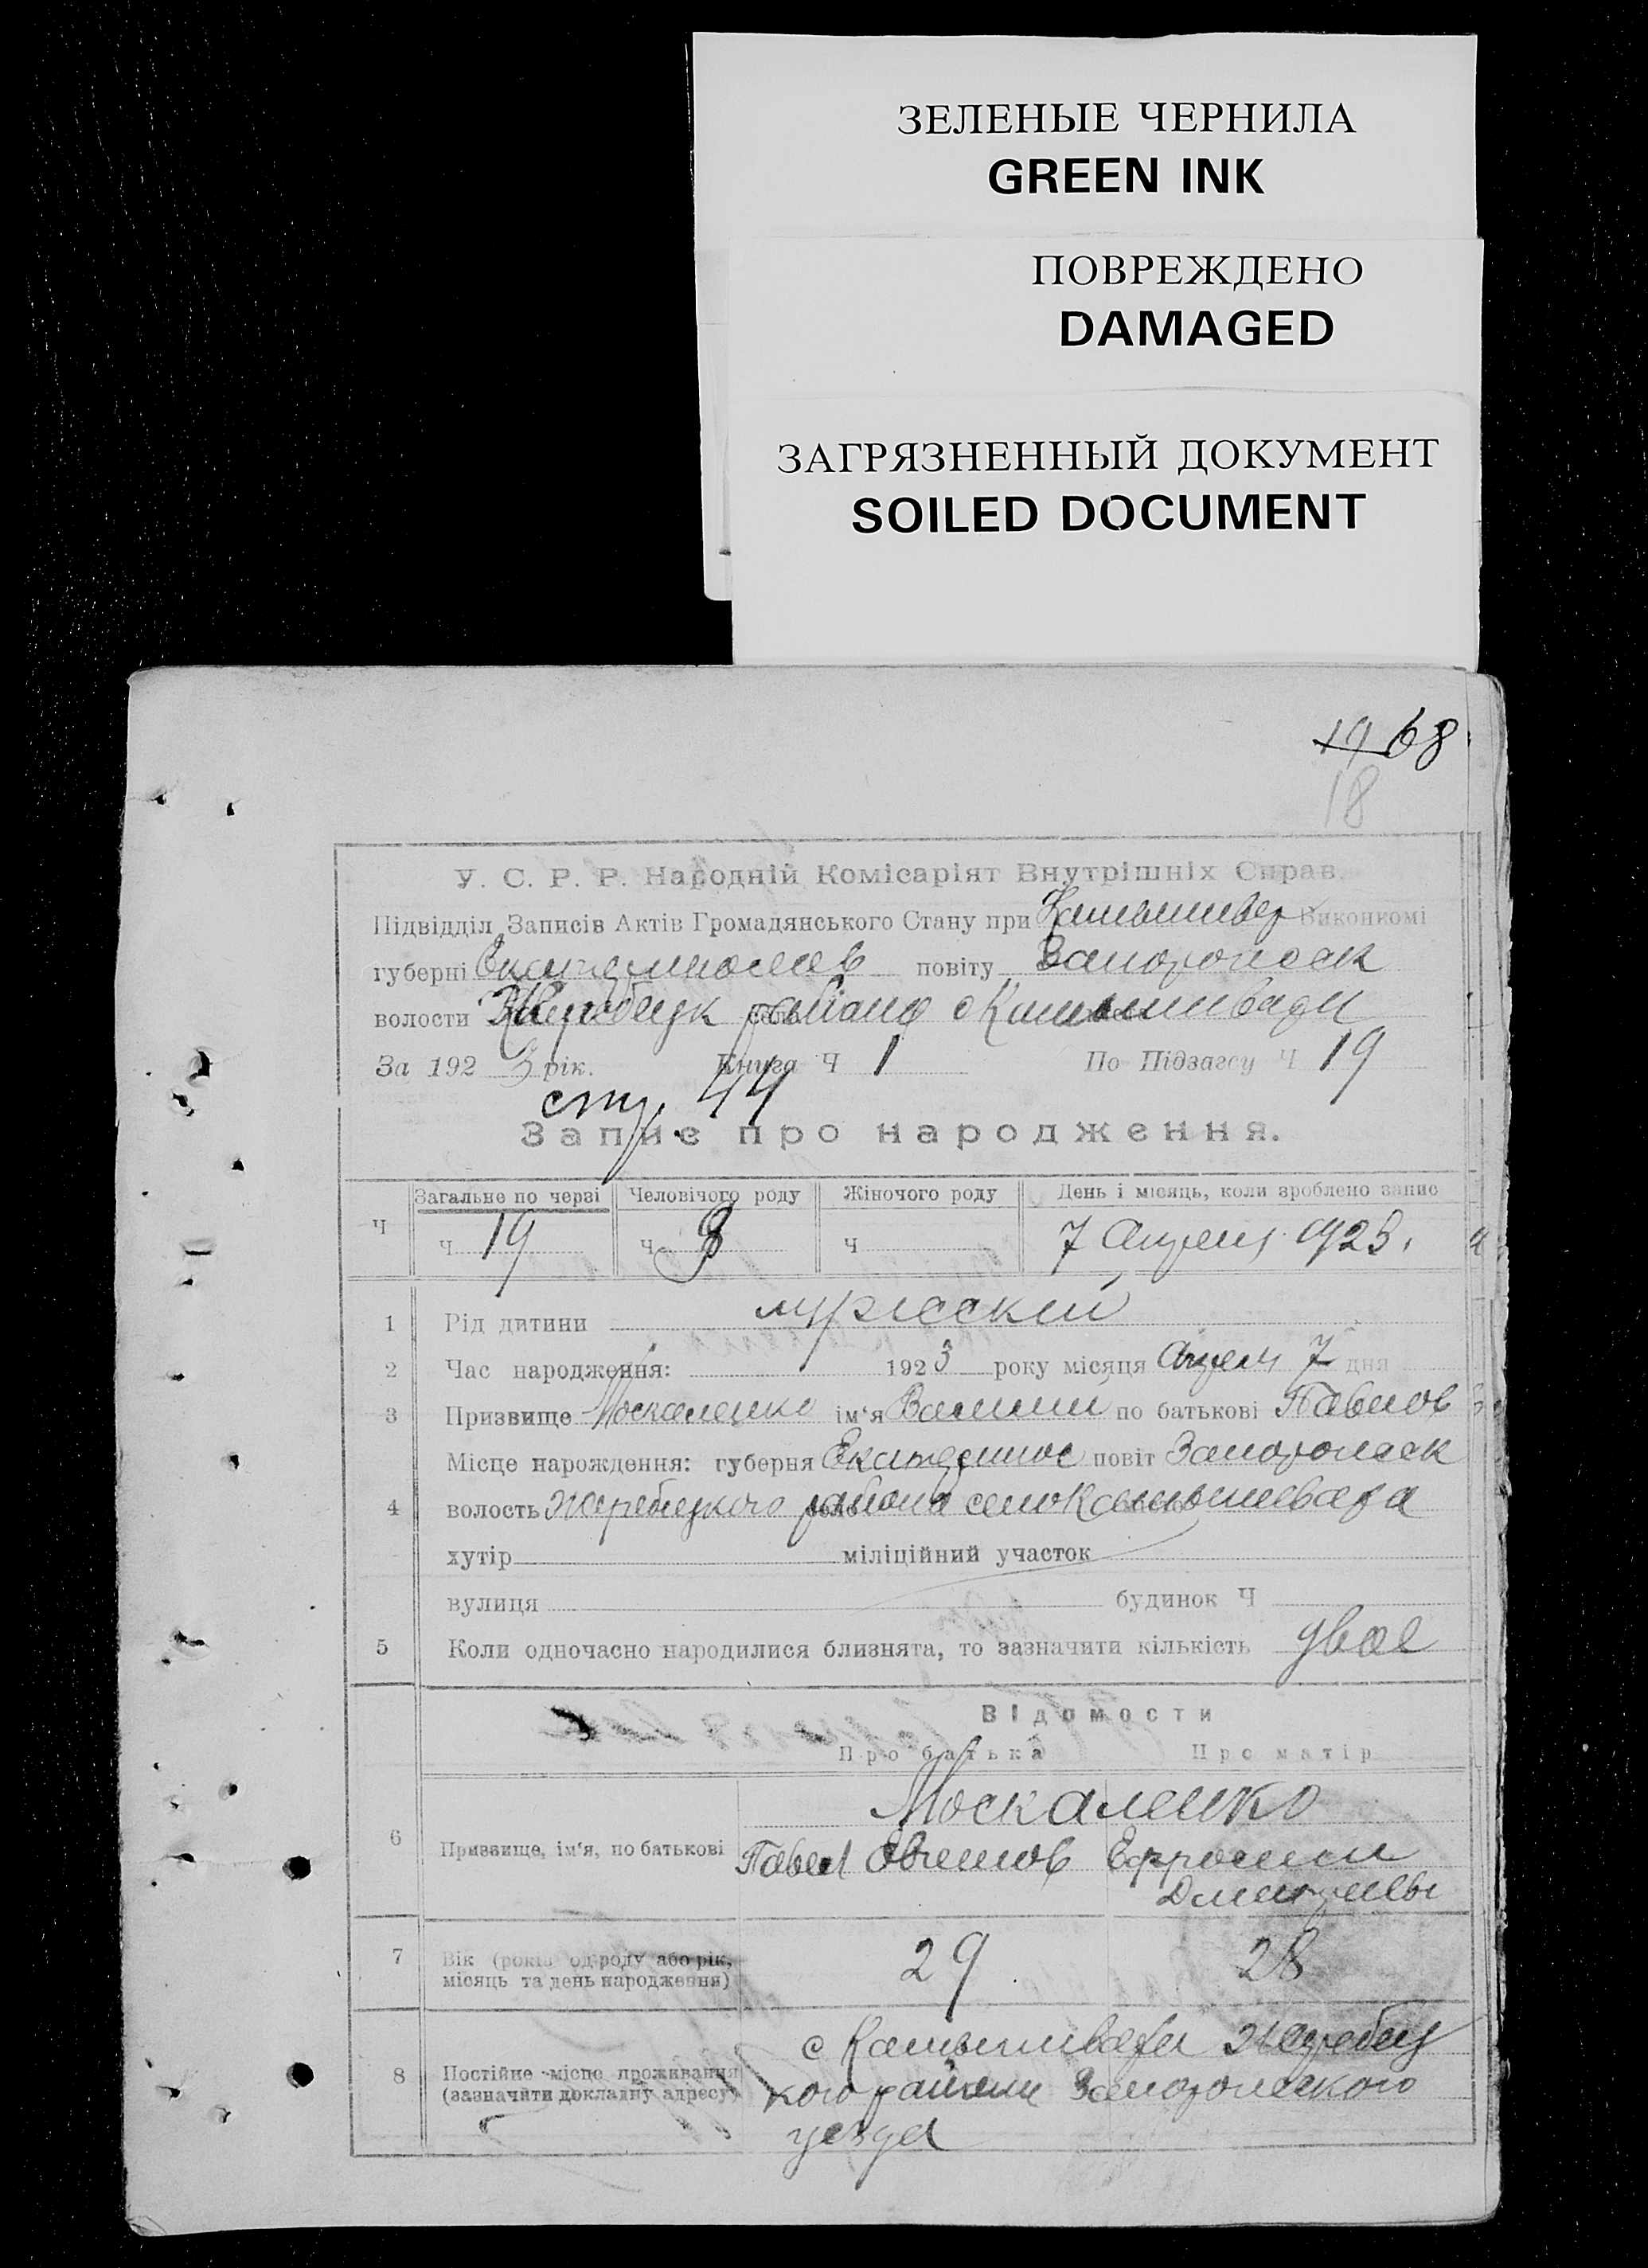 ЗЕЛЕНЫЕ ЧЕРНИЛА
GREEN INK
ПОВРЕЖДЕНО
DAMAGED
ЗАГРЯЗНЕННЫЙ ДОКУМЕНТ
SOILED DOCUMENT
19 68
18
У. С. Р. Р. Народній Комісаріят Внутрішніх Справ.
Підвідділ Записів Актів Громадянського Стану при Виконкомі
губерні повіту Запорожск
волости Жеребецк района с
За 192 3 рік. Книга Ч 1 По Підзагсу Ч 19
стр. 44
Запис про народження.
Загальне по черзі Человічого роду Жіночого роду День і місяць, коли зроблено запис
Ч ч 19 ч 8 ч 7 Апреля 1923.
1 Рід дитини мужеский
2 Час народження: 1923 року місяця Апреля 7 дня
3 Призвище Москаленко ім'я по батькові Павлов
Місце нарождення: губерня Екатеринос повіт Запорожск
4 волость Жеребецкого района село Камышеваха
хутір міліційний участок
вулиця будинок Ч
5 Коли одночасно народилися близнята, то зазначити кількість двое
Відомости
Про батька Про матір
Москаленко
6 Призвище, ім'я, по батькові Павел Ефросини
7 Вік (років од роду або рік, місяць та день народження) 29 28
с Камышеваха Жеребец
8 Постійне місце проживання (зазначити докладну адресу) кого района Запорожского
уезда